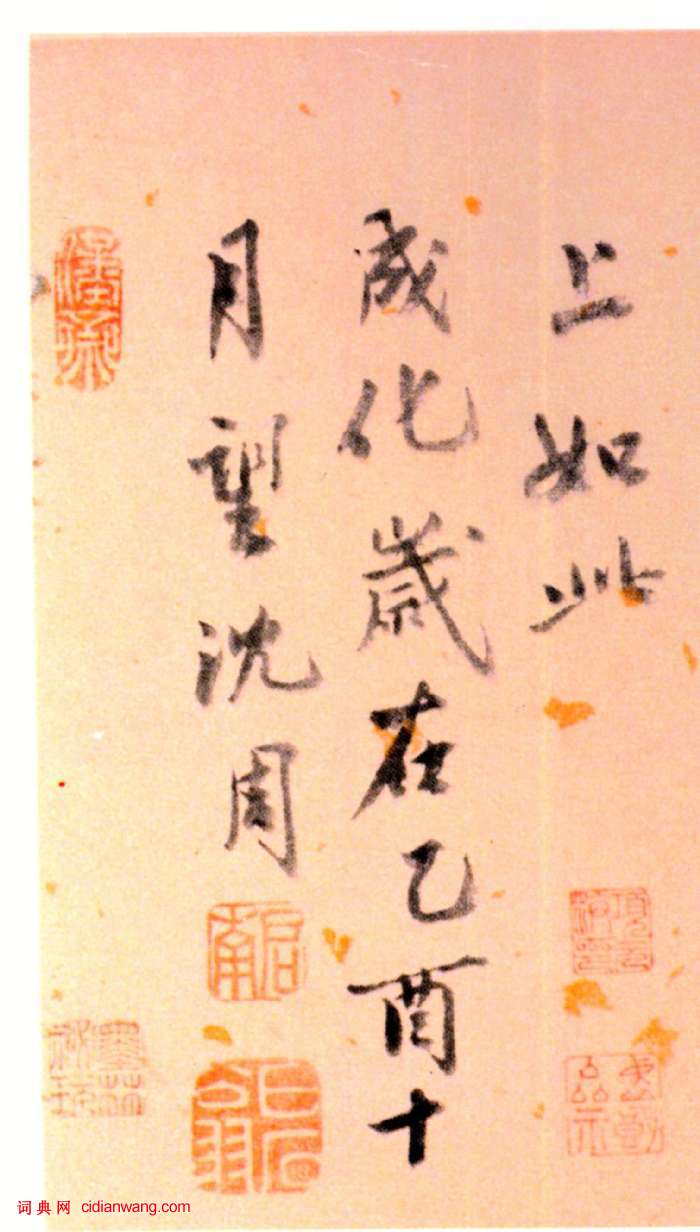 上如此
成化歲在乙酉十
月望沈周
啓南
墨林
祕玩
词典网 cidianwang.com